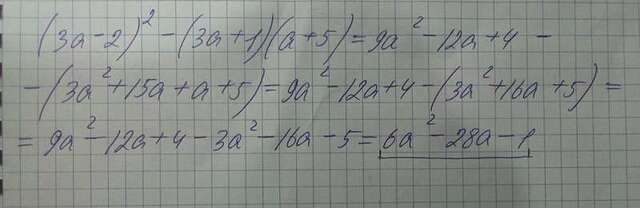 (3a-2)² - (3a+1)(a+5) = 9a² - 12a + 4 -
- (3a² + 15a + a + 5) = 9a² - 12a + 4 - (3a² + 16a + 5) =
= 9a² - 12a + 4 - 3a² - 16a - 5 = 6a² - 28a - 1